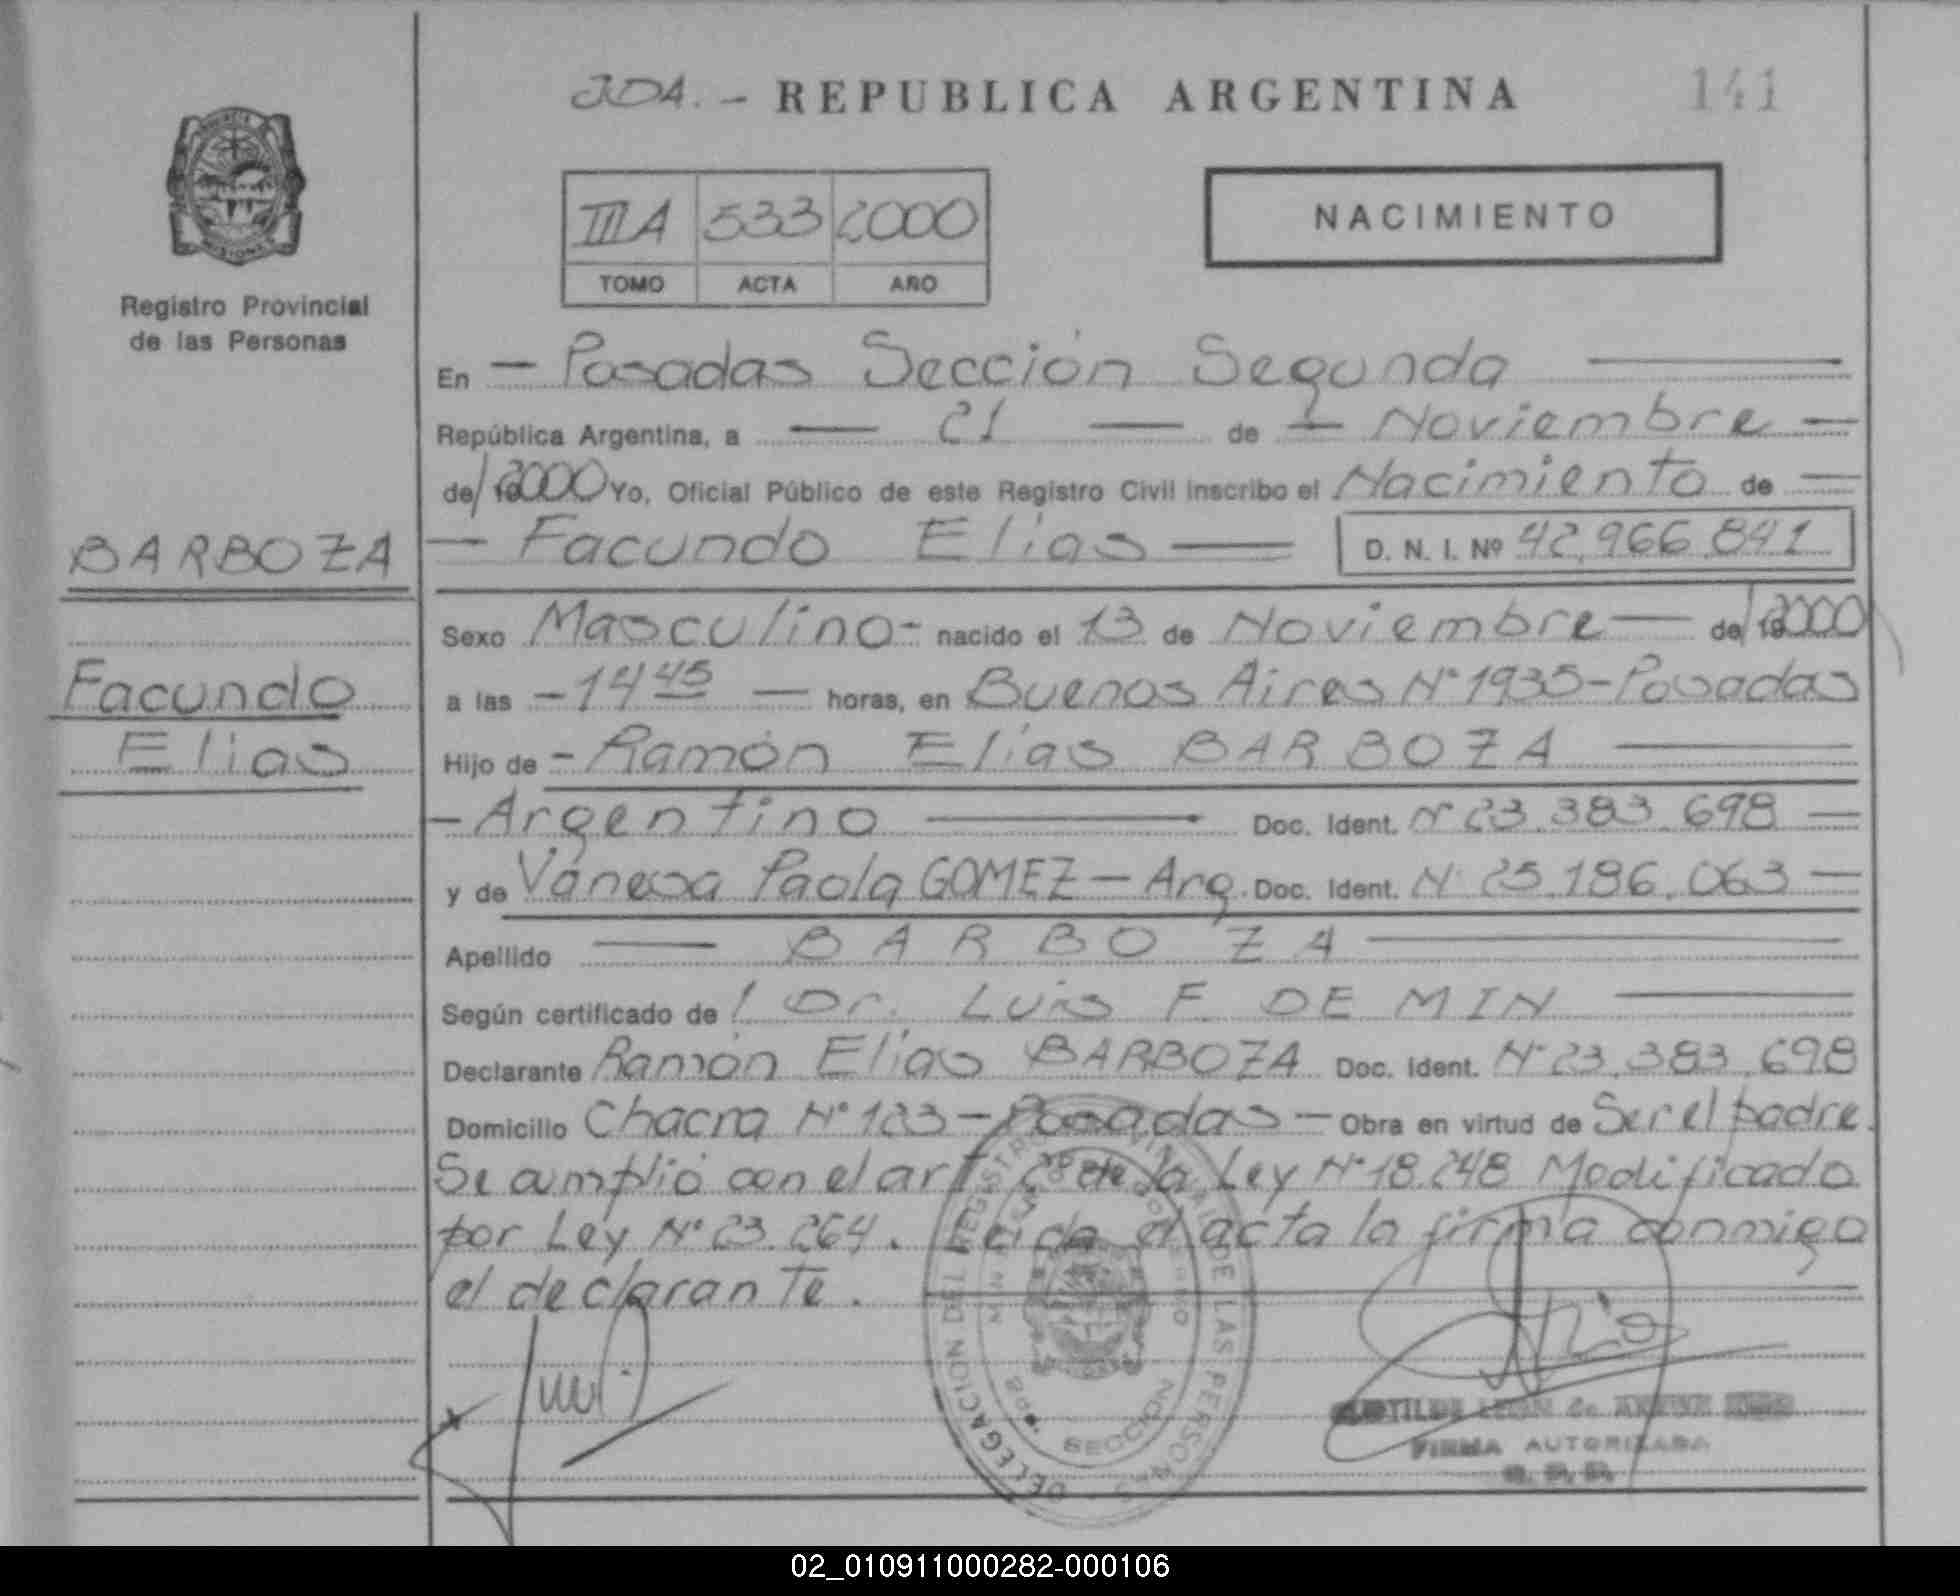 2DA. - REPUBLICA ARGENTINA 141
III A 533 2000
TOMO ACTA AÑO
NACIMIENTO
Registro Provincial
de las Personas
En - Posadas Sección Segunda
República Argentina, a 21 de Noviembre
de 2000 Yo, Oficial Público de este Registro Civil inscribo el Nacimiento de
BARBOZA
Facundo Elías D. N. I. Nº 42.966.841
Sexo Masculino - nacido el 13 de Noviembre de 2000
Facundo
a las - 14 45 horas, en Buenos Aires Nº 1935 - Posadas
Elías
Hijo de - Ramón Elías BARBOZA
- Argentino Doc. Ident. Nº 23.383.698
y de Vanesa Paola GOMEZ - Arg. Doc. Ident. Nº 25.186.063
Apellido BARBOZA
Según certificado de Dr. Luis F. DE MIN
Declarante Ramón Elías BARBOZA Doc. Ident. Nº 23.383.698
Domicilio Chacra Nº 123 - Posadas - Obra en virtud de Ser el padre.
Se cumplió con el art 2º de la Ley Nº 18.248 Modificado
por Ley Nº 23.264. Leída el acta la firma conmigo
el declarante.
DELEGACION DEL REGISTRO PROVINCIAL DE LAS PERSONAS
SECCION
FIRMA AUTORIZADA
02_010911000282-000106